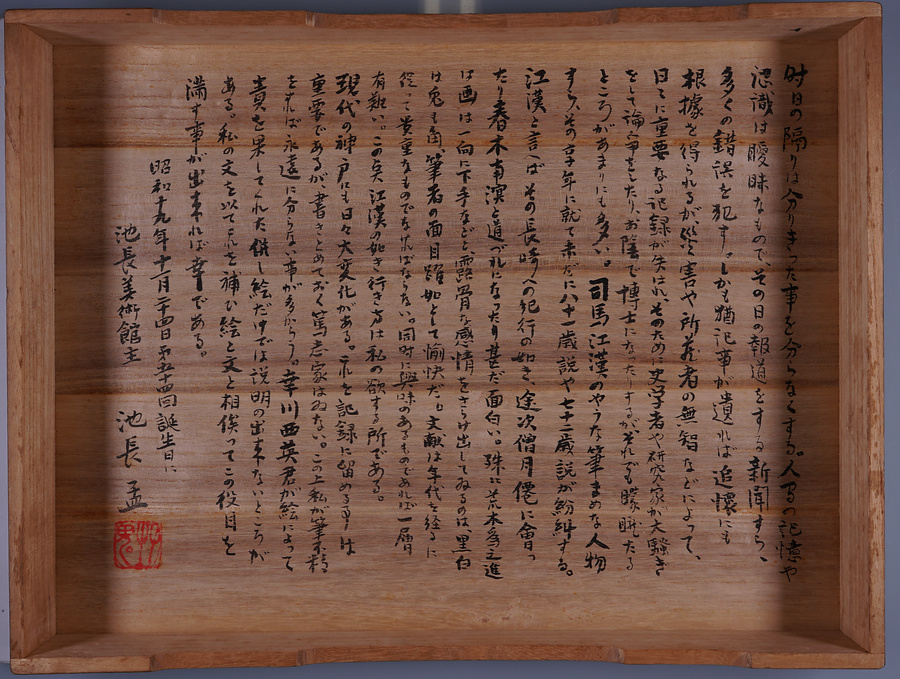 時日の隔りは分りきった事を分らなくする。人間の記憶や
認識は曖昧なもので、その日の報道をする新聞すら、
多くの錯誤を犯す。しかも猶記事が遺れば追懐にも
根據を得られるが災害や所蔵者の無智などによって、
日々に重要なる記録が失はれ、そのため史学者や研究家が大騒ぎ
をして論争をしたり、お陰で博士になったりする。がそれでも朦朧たる
ところがあまりにも多い。司馬江漢のやうな筆まめな人物
すら、その享年に就て未だに八十一歳説や七十二歳説が紛糾する。
江漢と言へばその長崎への紀行の如き、途次僧月僊に會っ
たり春木南溟と道づれになったり甚だ面白い。殊に荒木為之進
は画は一向に下手などと露骨な感情をさらけ出してゐるのは、黒白
は兎も角、筆者の面目躍如として愉快だ。文献は年代を経るに
従って貴重なものでなければならない。同時に興味のあるものであれば一層
有難い。この点江漢の如き行き方は私の欲する所である。
現代の神戸にも日々大変化がある。それを記録に留める事は
重要であるが、書きとめておく篤志家はゐない。この上私が筆不精
をすれば永遠に分らない事が多からう。幸川西英君が絵によって
責を果してくれた。但し絵だけでは説明の出来ないところが
ある。私の文を以てこれを補ひ絵と文と相俟ってこの役目を
満す事が出来れば幸である。
昭和十九年十一月二十四日第五十四回誕生日に
池長美術館主 池長孟